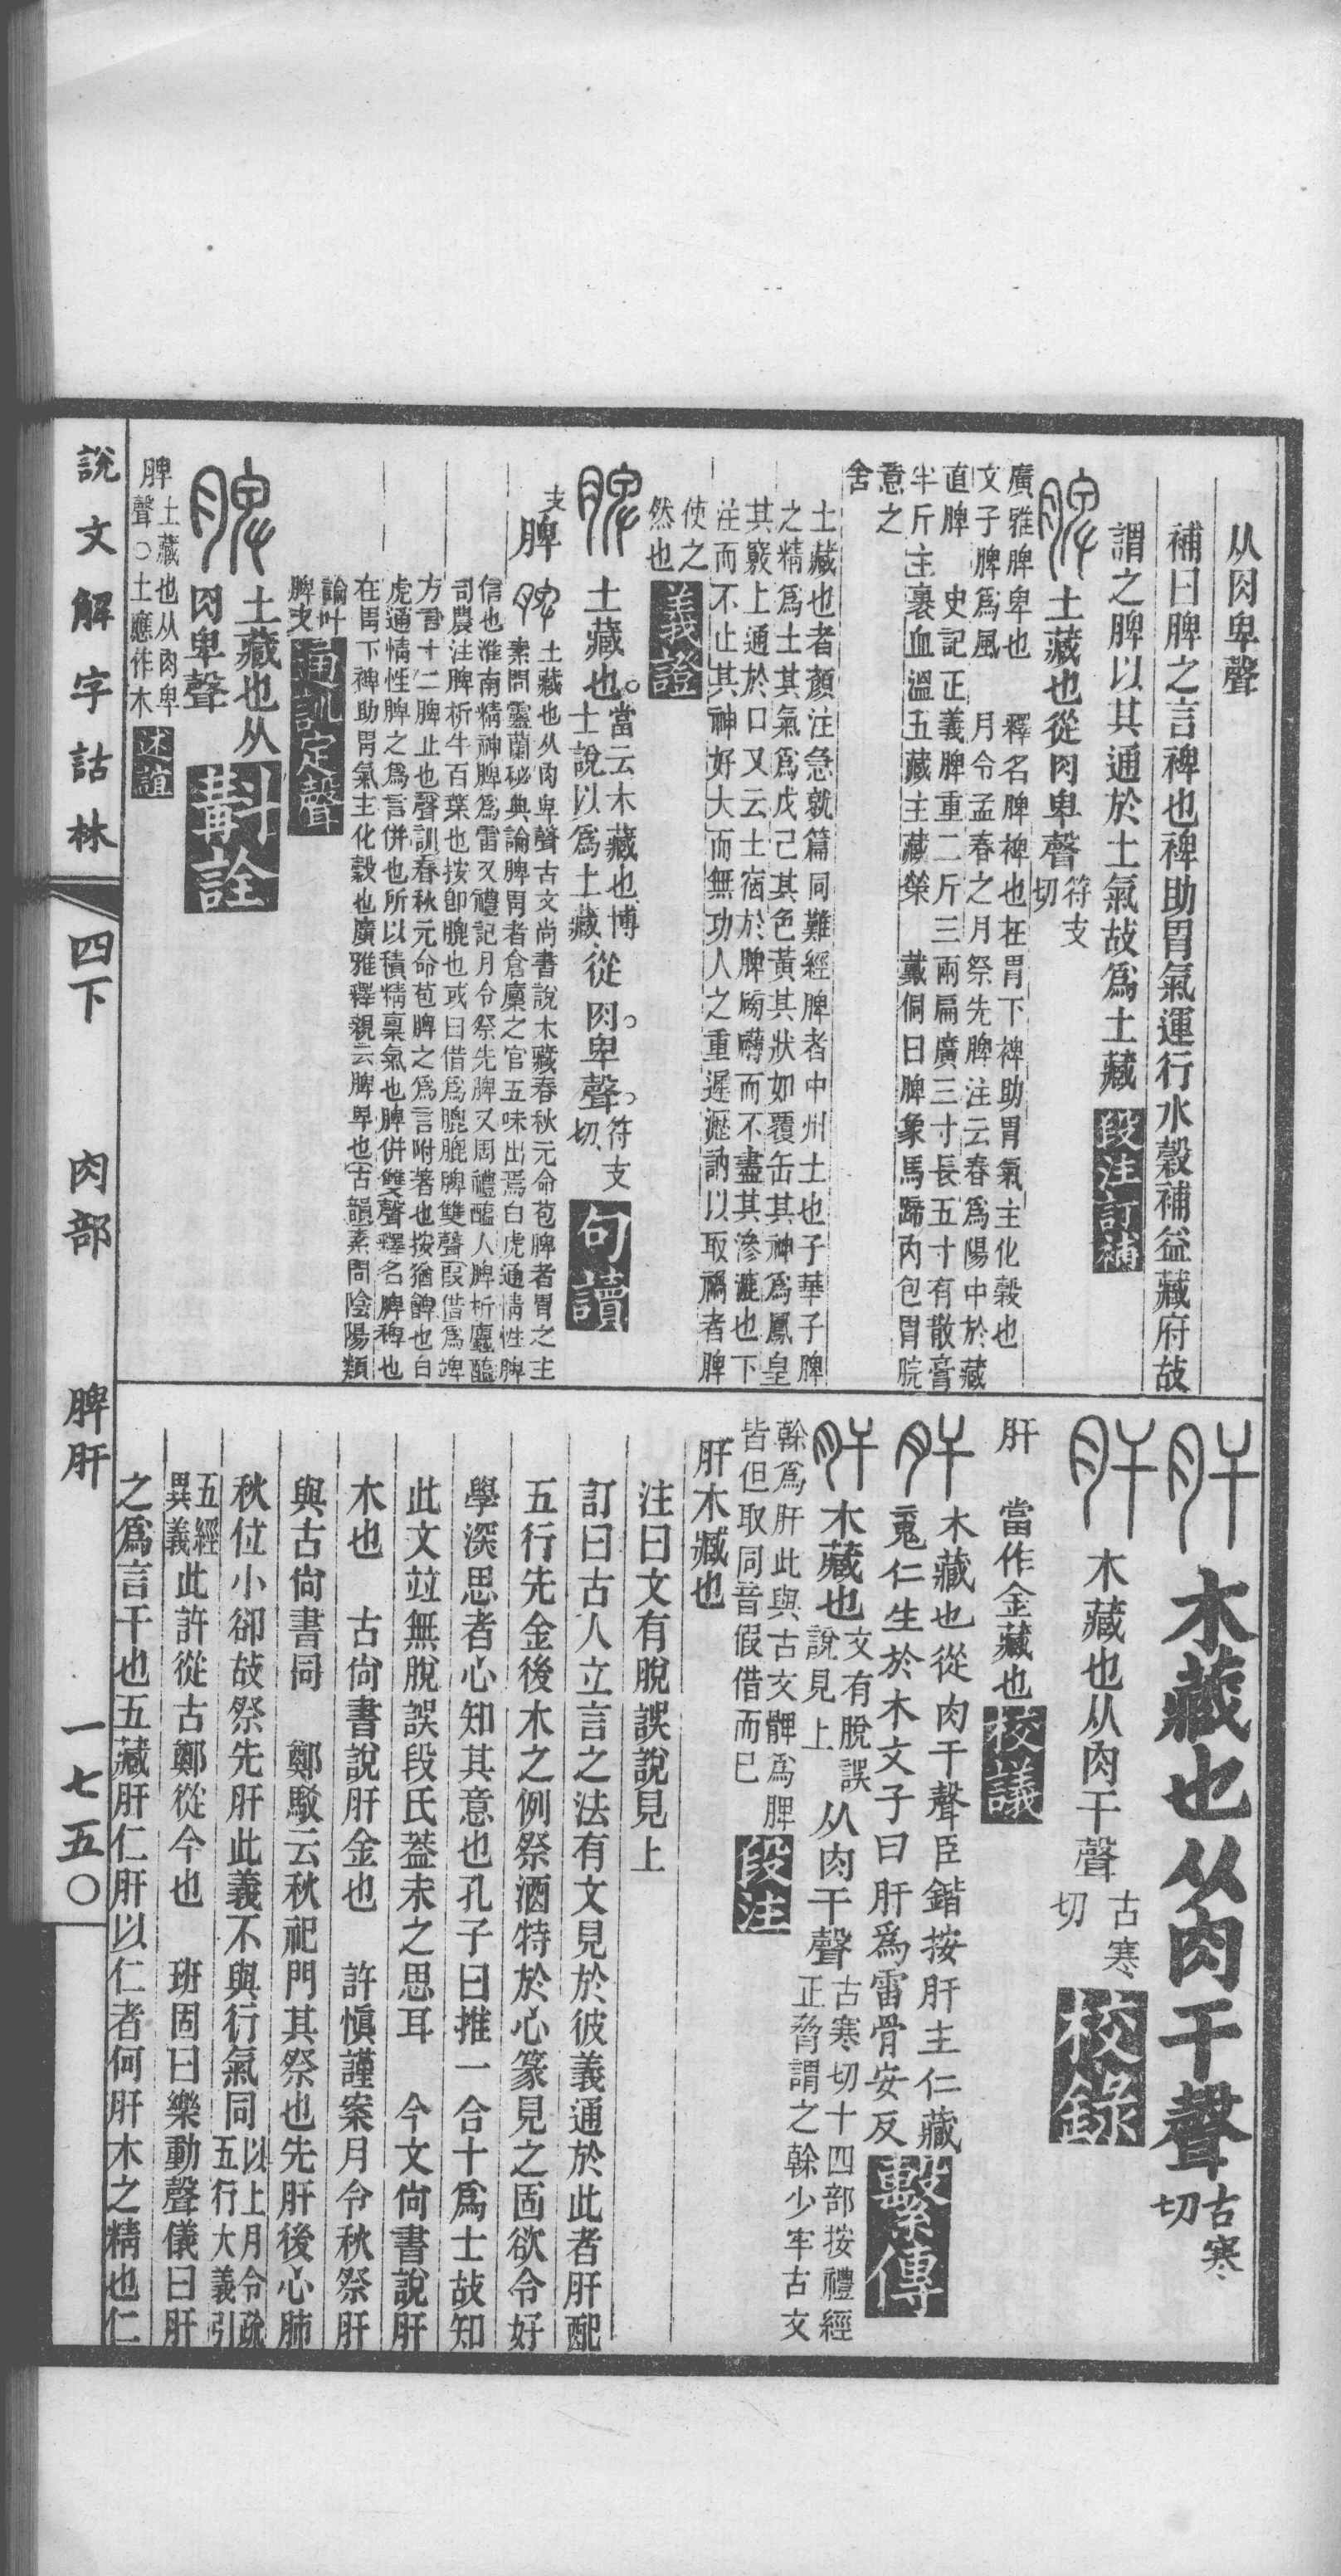 从肉卑聲
補曰脾之言裨也裨助胃氣運行水穀補益藏府故
謂之脾以其通於土氣故爲土藏 段注訂補
土藏也從肉卑聲符支切
廣雅脾卑也 釋名脾裨也在胃下裨助胃氣主化穀也
文子脾爲風 月令孟春之月祭先脾注云春爲陽中於藏
直脾 史記正義脾重二斤三兩扁廣三寸長五寸有散膏
半斤主裹血溫五藏主藏榮 戴侗曰脾象馬蹄內包胃脘
意之
舍
土藏也者顏注急就篇同難經脾者中州土也子華子脾
之精爲土其氣爲戊己其色黃其狀如覆缶其神爲鳳皇
其竅上通於口又云土宿於脾 而不盡其滲漉也下
注而不止其神好大而無功人之重遲澀訥以取禍者脾
使之
然也 義證
土藏也當云木藏也博士說以爲土藏從肉卑聲符支切 句讀
支
脾 土藏也从肉卑聲古文尚書說木藏春秋元命苞脾者胃之主
素問靈蘭秘典論脾胃者倉廩之官五味出焉白虎通情性脾
信也淮南精神脾爲雷又禮記月令祭先脾又周禮醢人脾析蠯醢
司農注脾析牛百葉也按卽膍也或曰借爲膍膍脾雙聲假借爲埤
方言十二脾止也聲訓春秋元命苞脾之爲言附著也按猶髀也白
虎通情性脾之爲言併也所以積精稟氣也脾併雙聲釋名脾裨也
在胃下裨助胃氣主化穀也廣雅釋親云脾卑也古韻素問陰陽類
論叶
脾支 通訓定聲
土藏也从
肉卑聲 斠詮
脾 土藏也从肉卑
聲○土應作木 述誼
木藏也从肉干聲古寒切
木藏也从肉干聲古寒切 校錄
肝 當作金藏也 校議
木藏也從肉干聲臣鍇按肝主仁藏
䰟仁生於木文子曰肝爲雷骨安反 繫傳
木藏也文有脫誤說見上从肉干聲古寒切十四部按禮經正脅謂之榦少牢古文
榦爲肝此與古文髀爲脾
皆但取同音假借而已 段注
肝木臧也
注曰文有脫誤說見上
訂曰古人立言之法有文見於彼義通於此者肝配
五行先金後木之例祭酒特於心篆見之固欲令好
學深思者心知其意也孔子曰推一合十爲士故知
此文竝無脫誤段氏蓋未之思耳 今文尙書說肝
木也 古尙書說肝金也 許愼謹案月令秋祭肝
與古尙書同 鄭駁云秋祀門其祭也先肝後心肺
秋位小卻故祭先肝此義不與行氣同以上月令疏五行大義引
五經異義此許從古鄭從今也 班固曰樂動聲儀曰肝
之爲言干也五藏肝仁肝以仁者何肝木之精也仁
說文解字詁林 四下 肉部 脾肝 一七五〇